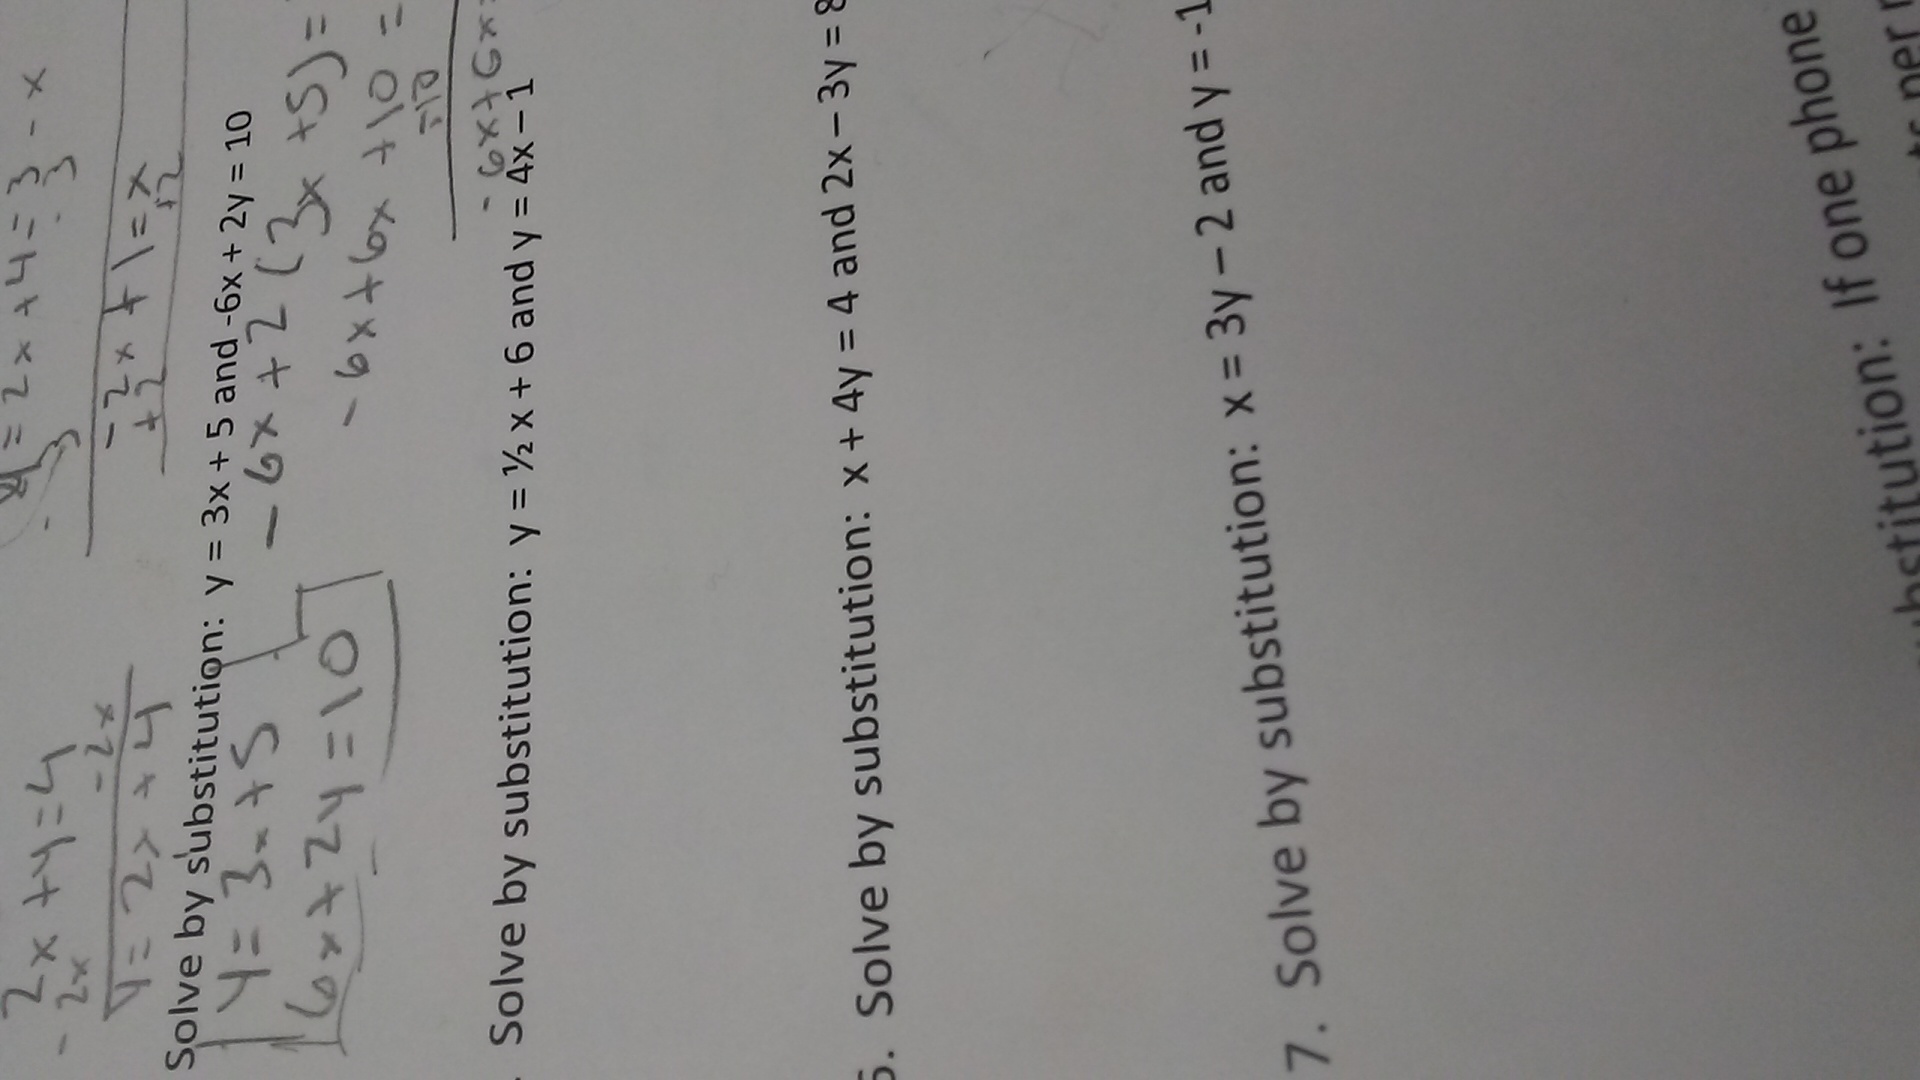 2x + y = 4
- 2x - 2x
y = 2x + 4
= 2x + 4 = 3 - x
- 3 - 3
- 2x + 1 = x
+ 2 + 2
Solve by substitution: y = 3x + 5 and -6x + 2y = 10
y = 3x + 5
6x + 2y = 10
- 6x + 2 (3x + 5) =
- 6x + 6x + 10 =
- 10
- 6x + 6x
Solve by substitution: y = ½ x + 6 and y = 4x – 1
6. Solve by substitution: x + 4y = 4 and 2x – 3y = 8
7. Solve by substitution: x = 3y – 2 and y = -1
If one phone
substitution: per